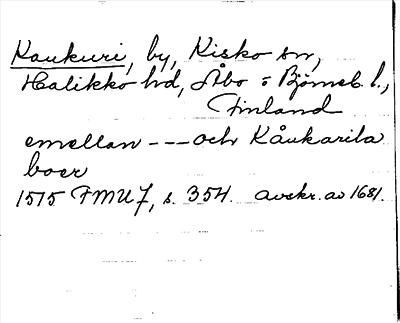 Kaukuri, by, Kisko sn,
Halikko hd, Åbo o Björneb. l.,
Finland
emellan --- och Kåukarila
boer
1515 FMU 7, s. 354. avskr. av 1681.